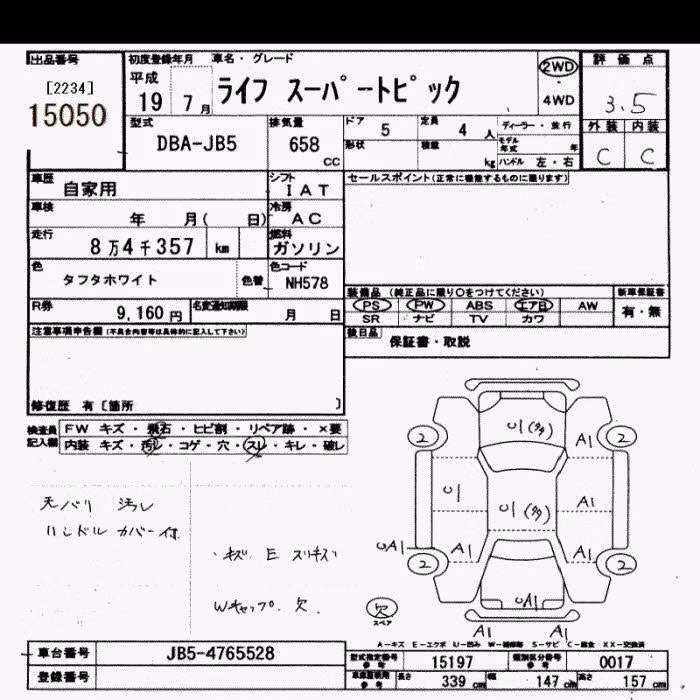 出品番号
[2234]
15050
初度登録年月 車名・グレード
平成
19 7月 ライフ スーパートピック
2WD
4WD
評価点
3.5
外装 内装
C C
型式
DBA-JB5
排気量
658
CC
ドア
5
定員
4 人
ディーラー・並行
形状
積載
kg
モデル年式 年
ハンドル 左・右
車歴
自家用
シフト
IAT
セールスポイント(正常に機能するものに限ります)
車検
年 月( 日)
冷房
AC
走行
8万4千357 km
燃料
ガソリン
色
タフタホワイト
色替
色コード
NH578
R券
9,160円
名変通知期限
月 日
装備品 (純正品に限り○をつけてください)
新車保証書
PS PW ABS エアB AW
有・無
SR ナビ TV カワ
注意事項申告欄(不具合内容等は具体的に記入して下さい)
後日品
保証書・取説
修復歴 有〔箇所 〕
検査員記入欄
FW キズ・飛石・ヒビ割・リペア跡・×要
内装 キズ・汚レ・コゲ・穴・スレ・キレ・破レ
天バリ 汚レ
ハンドル カバー付
・キズ. E スリキズ
Wキャップ. 欠
欠
スペア
2
2
2
2
U1(多)
U1(多)
U1
UA1
A1
A1
A1
A1
UA1
A1
A1
A-キズ E-エクボ U-凹み W-補修跡 S-サビ C-腐食 XX-交換済
車台番号
JB5-4765528
登録番号
型式指定番号
参考
15197
類別区分番号
参考
0017
車車証明用
参考
長さ
339 cm
幅
147 cm
高さ
157 cm